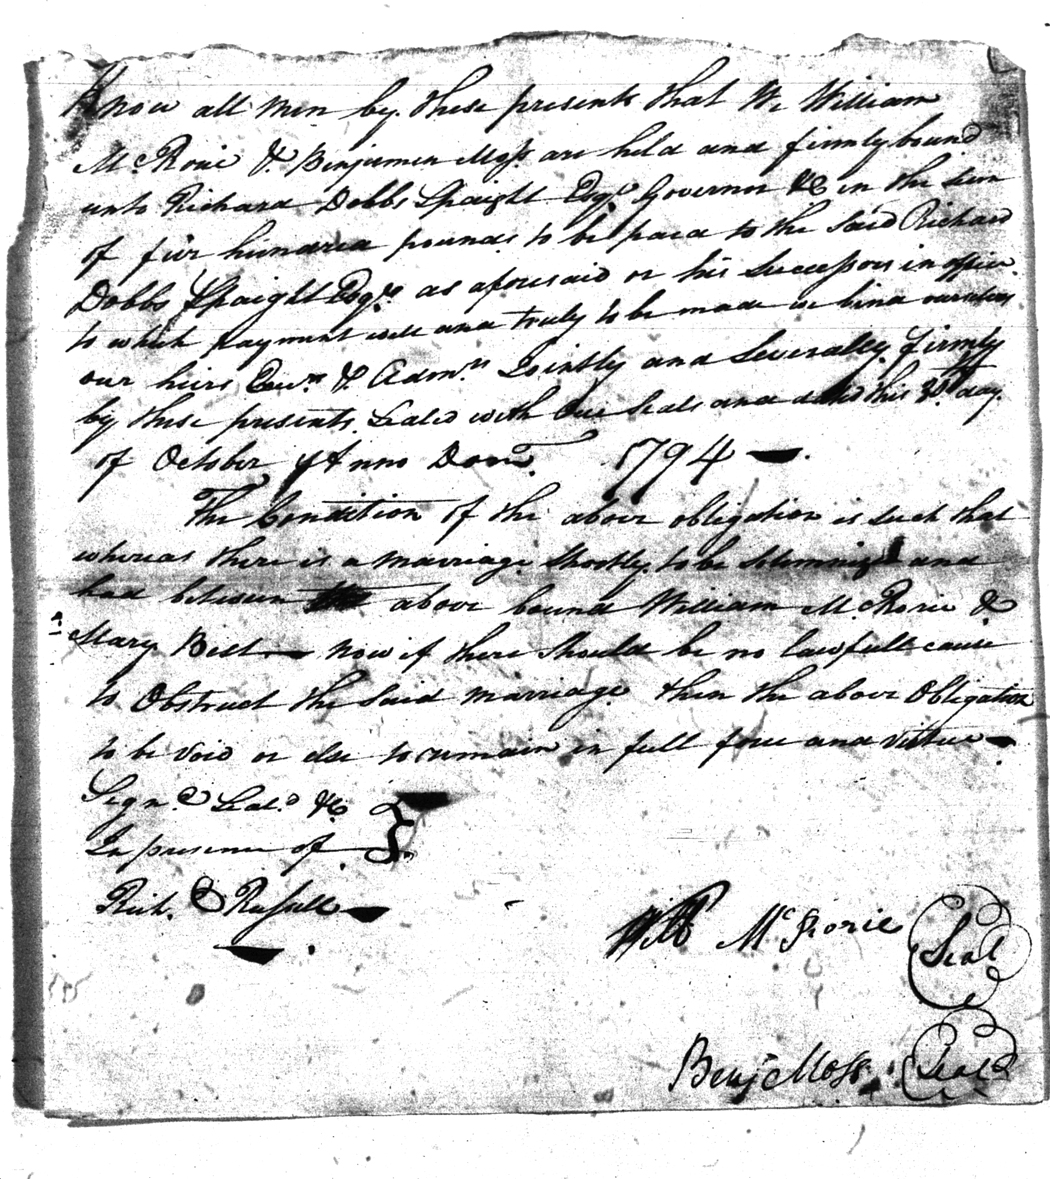 Know all men by these presents that We William
McRorie & Benjamen Moss are held and firmly bound
unto Richard Dobbs Spaight Esqr. Governor &c in the sum
of five hundred pounds to be paid to the said Richard
Dobbs Spaight Esqr. as aforesaid or his successors in office
to which payment well and truly to be made we bind ourselves
our heirs Exrs. & Admrs. Jointly and Severally firmly
by these presents Seald with Our Seals and dated this day
of October Anno Dom. 1794
The Condition of the above obligation is such that
whereas there is a marriage Shortly to be Solemnized and
had between above bound William McRorie &
Mary Best now if there should be no lawfull cause
to Obstruct the said marriage then the above Obligation
to be void or else to remain in full force and virtue
Signed Seald &c
In presence of
Rich. Russell
Will McRorie Seal
Benj Moss Seal